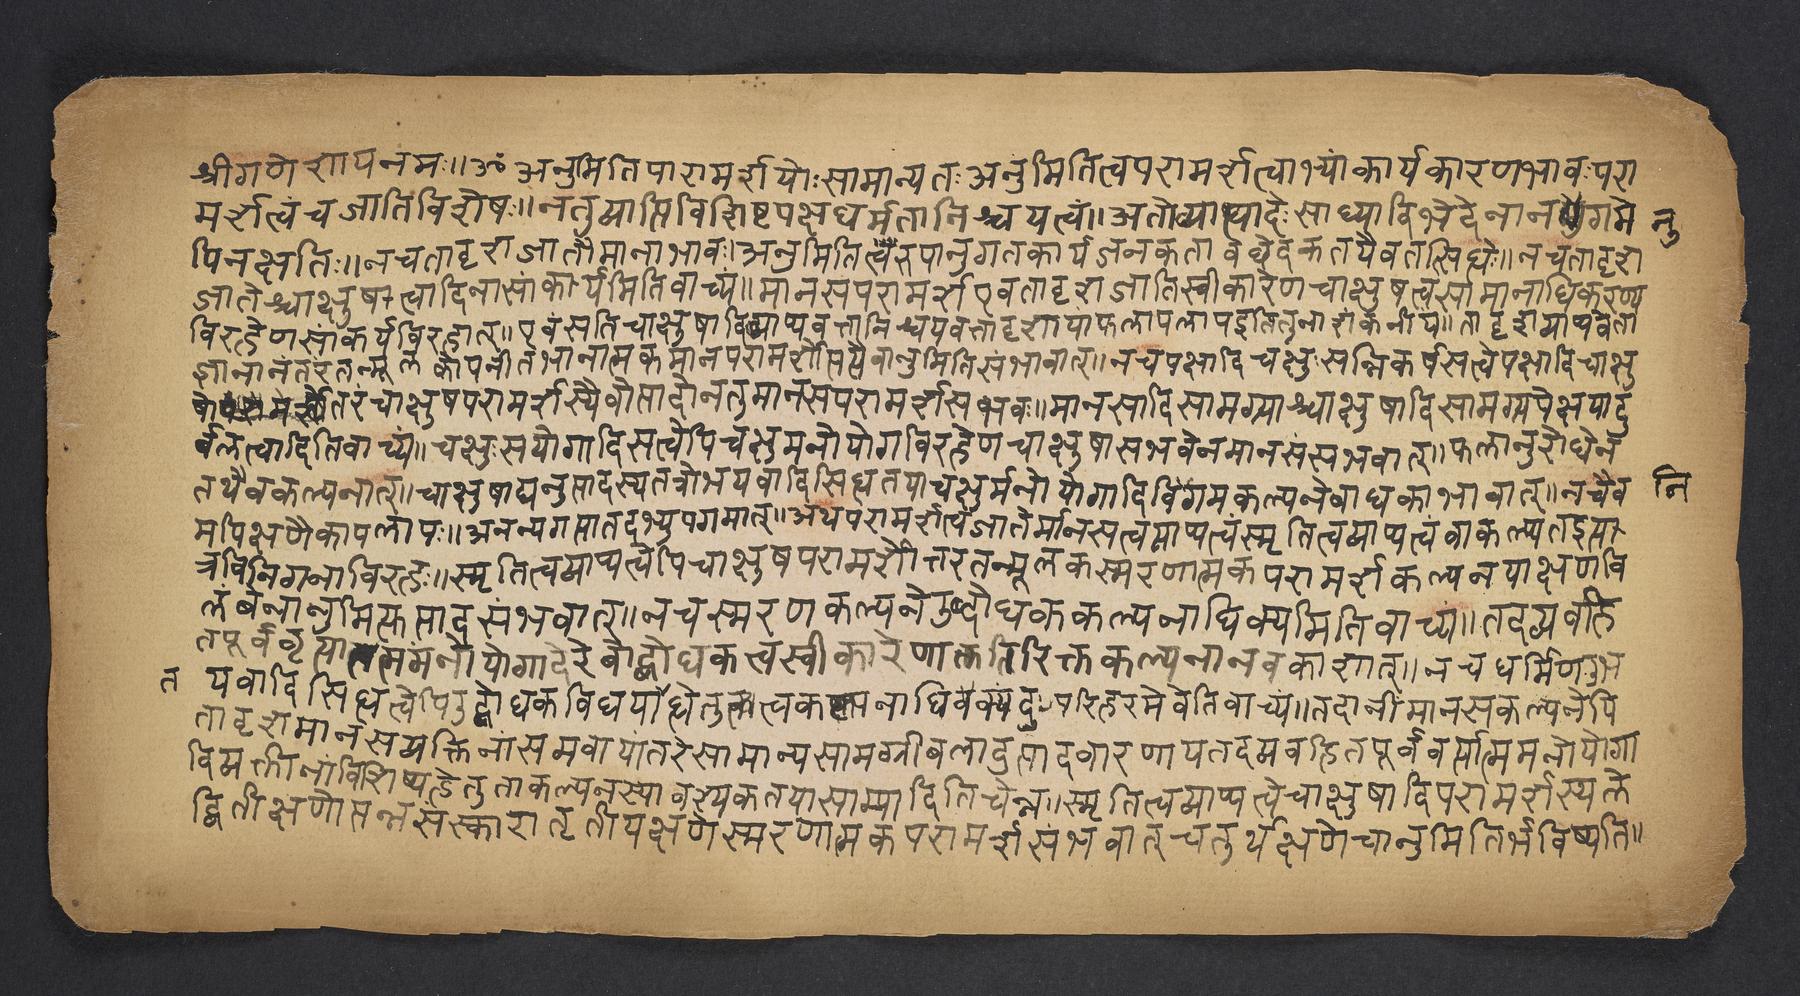 श्रीगणेशायनमः॥ॐ अनुमितिपारामर्शयोःसामान्यतःअनुमितित्वपरामर्शत्वाभ्यांकार्यकारणभावःपरा
मर्शत्वंचजातिविशेषः॥नतुव्याप्तिविशिष्टपक्षधर्मतानिश्चयत्वं॥अतोव्याप्यादेःसाध्यादिभेदेनान गमे नु
पिनक्षतिः॥नचतादृशजातौमानाभावः।अनुमितित्वरूपानुगतकार्यजनकतावछेदकतयैवतत्सिद्धेः॥नचतादृश
जातेश्चाक्षुषत्वादिनासांकार्यमितिवाच्यं॥मानसपरामर्शएवतादृशजातिस्वीकारेणचाक्षुषत्वसामानाधिकरण्य
विरहेणसांकर्यविरहात्॥एवंसतिचाक्षुषादिव्याप्यवत्तानिश्चयवत्तादृशायाफलापलापइतितुनाशंकनीयं॥तादृशव्याप्यवत्ता
ज्ञानानंतरंतन्मूलकोपनीतभानात्मकमानपरामर्शोत्तरमेवानुमितिसंभावात्॥नचपक्षादिचक्षुःसन्निकर्षसत्वेपक्षादिचाक्षु
तरंचाक्षुषपरामर्शस्यैवोत्पादोनतुमानसपरामर्शसंभवः॥मानसादिसामग्र्याश्चाक्षुषादिसामग्र्यपेक्षयादु
र्बलत्वादितिवाच्यं॥चक्षुःसंयोगादिसत्वेपिचक्षुमनोयोगविरहेणचाक्षुषासंभवेनमानससंभवात्॥फलानुरोधेन
तथैवकल्पनात्॥चाक्षुषाद्यनुत्पादस्यतत्रोभयवादिसिद्धतयाचक्षुर्मनोयोगादिविगमकल्पनेबाधकाभावात्॥नचैव नि
मपिक्षणैकापलापः॥अनन्यगत्यातदभ्युपगमात्॥अथपरामर्शत्वंजातेर्मानसत्वव्याप्यत्वंस्मृतित्वव्याप्यत्वंवाकल्प्यतइत्य
त्रविनिगनाविरहः॥स्मृतित्वव्याप्यत्वेपिचाक्षुषपरामर्शोत्तरतन्मूलकस्मरणात्मकपरामर्शकल्पनयाक्षणवि
लंबेनानुमित्युत्पादसंभवात्॥नचस्मरणकल्पनेउद्बोधककल्पनाधिक्यमितिवाच्यं॥तदव्यवहि
तपूर्ववृत्त्यात्ममनोयोगादेरेवोद्बोधकत्वस्वीकारेणातिरिक्तकल्पनानवकाशात्॥नचधर्मिणउभ
त यवादिसिद्धत्वेपिउद्बोधकविधयाहेतु त्वक नाधिक्यंदुःपरिहरमेवेतिवाच्यं॥तदानींमानसकल्पनेपि
तादृशमानसव्यक्तिनांसमवायांतरेसामान्यसामग्रीबलादुत्पादवारणायतदव्यवहितपूर्ववर्त्यात्ममनोयोगा
दिव्यक्तीनांविशिष्यहेतुताकल्पनस्यावश्यकतयासाम्यादितिचेन्न॥स्मृतित्वव्याप्यत्वेचाक्षुषादिपरामर्शस्थले
द्वितीक्षणोत्पन्नसंस्कारातृतीयक्षणेस्मरणात्मकपरामर्शसंभवात्चतुर्थक्षणेचानुमितिर्भविष्यति॥